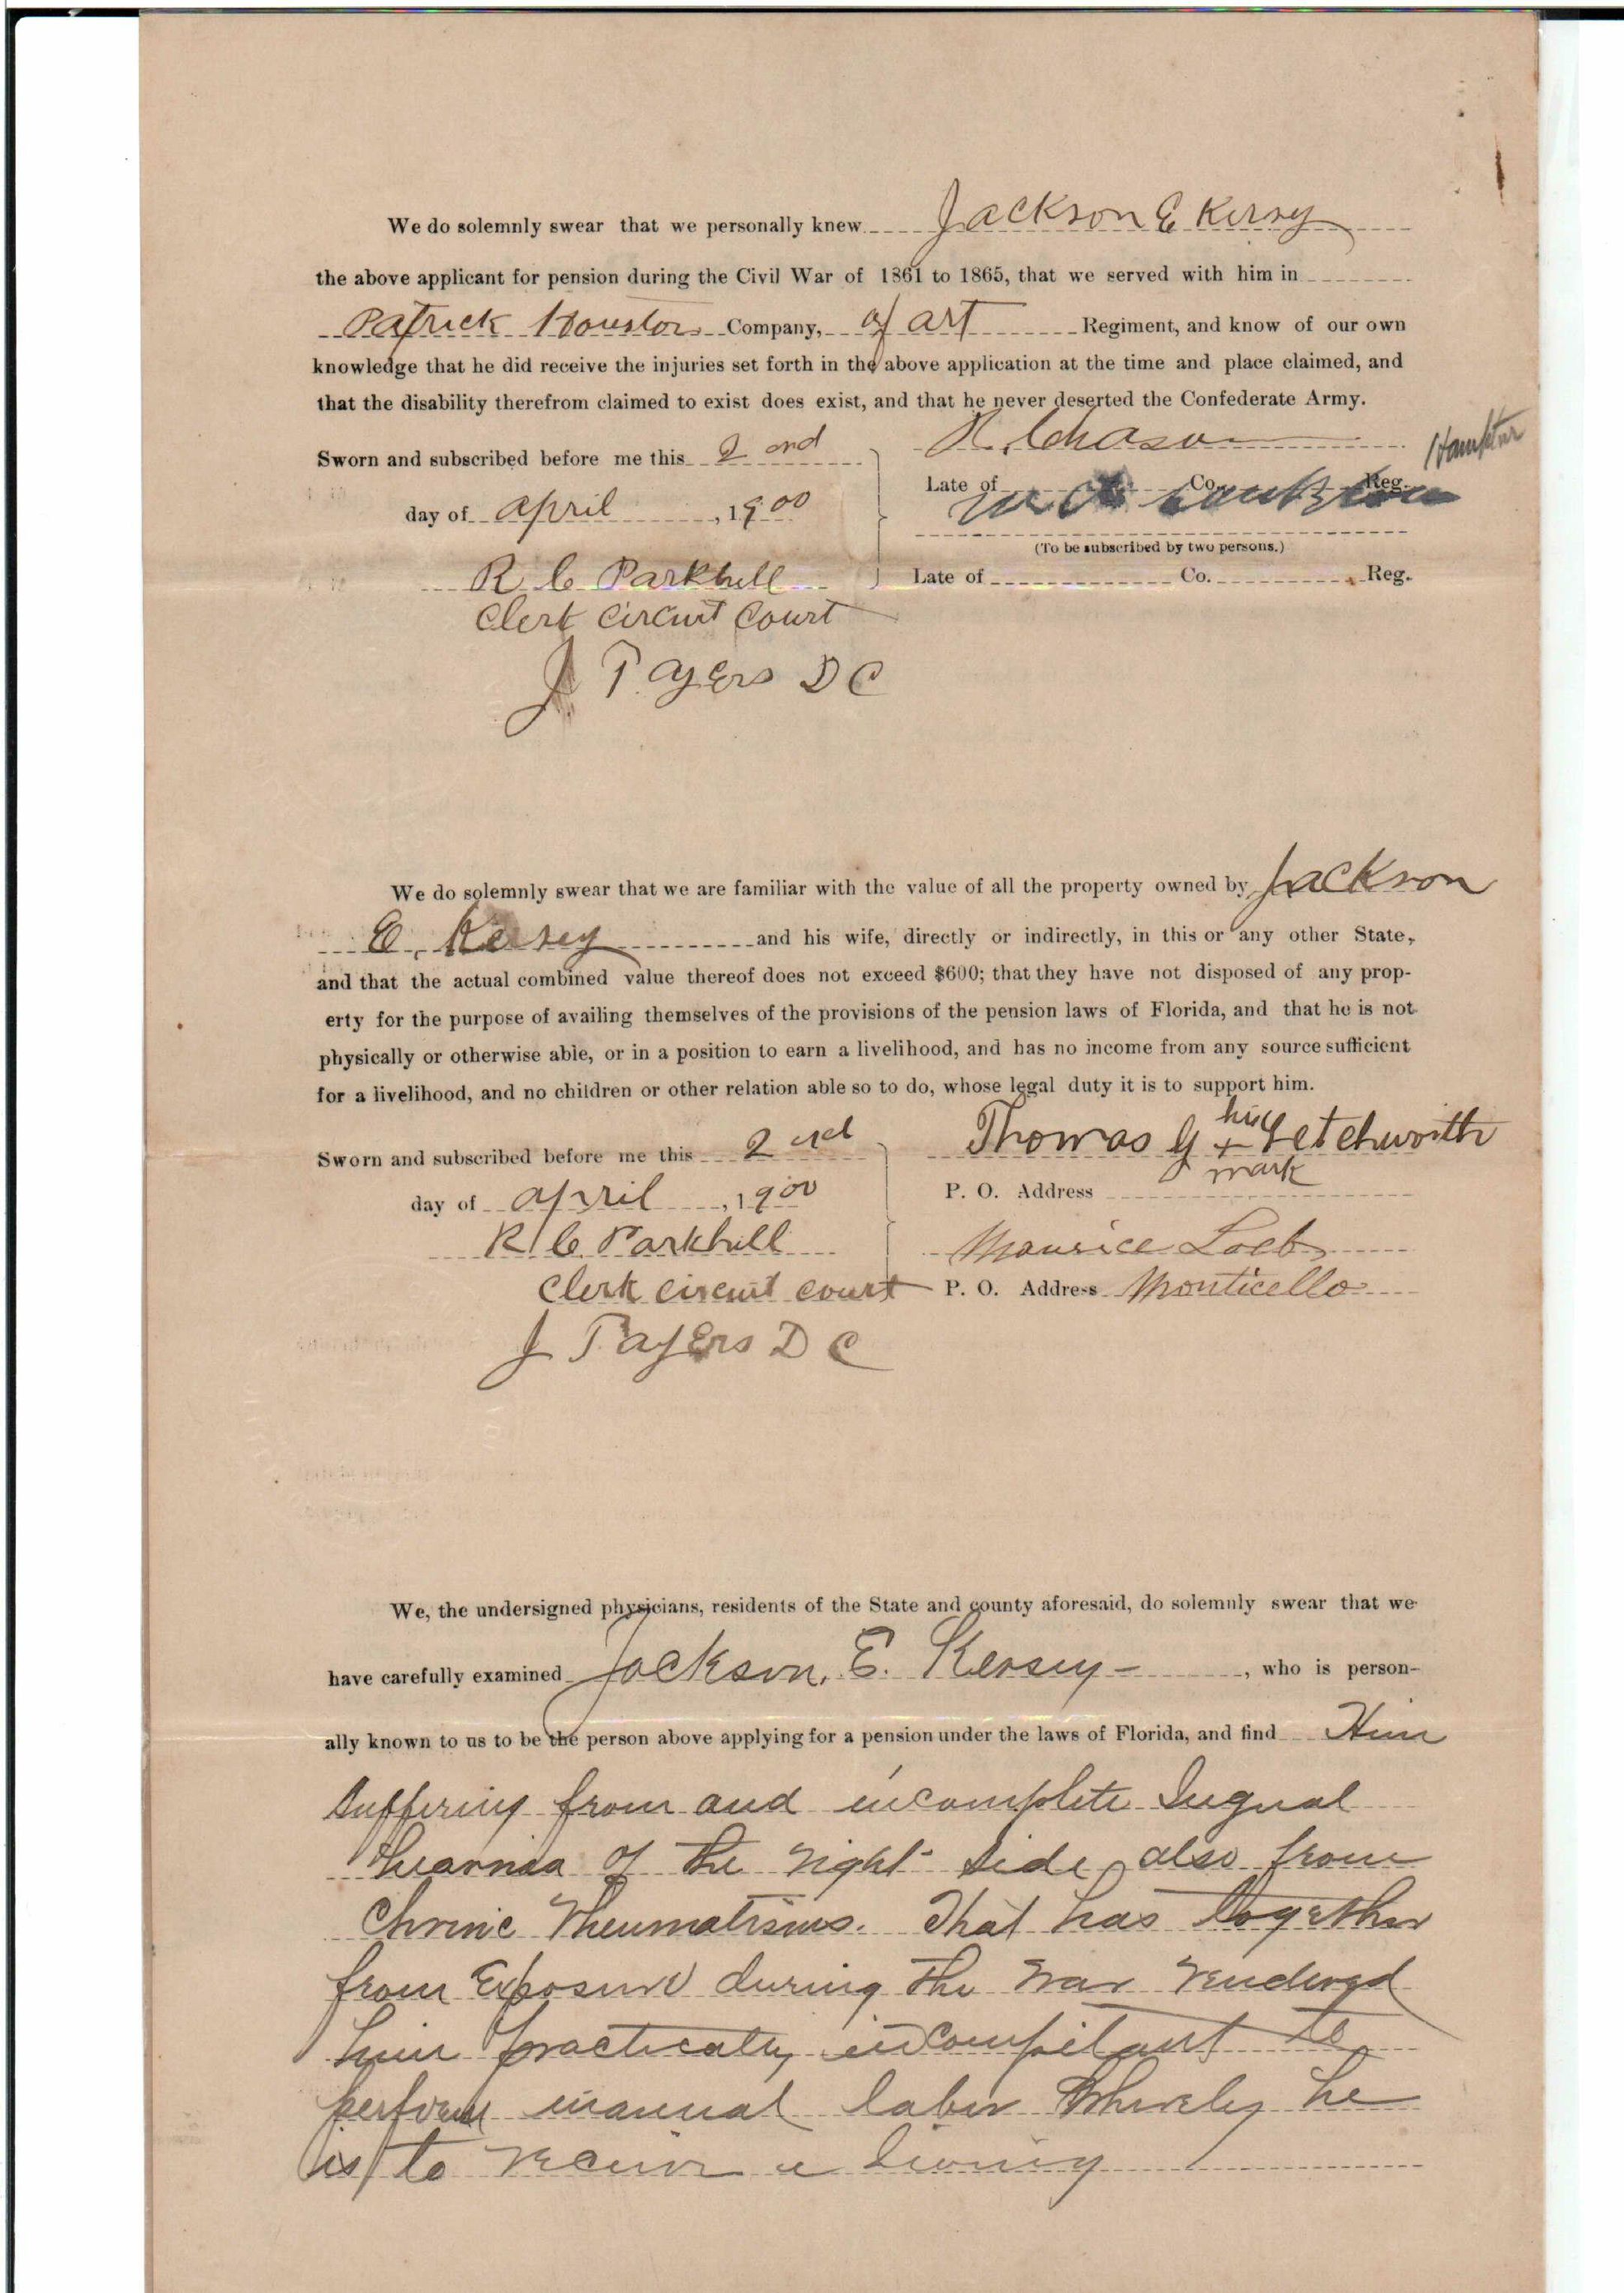 We do solemnly swear that we personally knew Jackson E Kersy
the above applicant for pension during the Civil War of 1861 to 1865, that we served with him in
Patrick Houston Company, of art Regiment, and know of our own
knowledge that he did receive the injuries set forth in the above application at the time and place claimed, and
that the disability therefrom claimed to exist does exist, and that he never deserted the Confederate Army.
Sworn and subscribed before me this 2nd
day of april, 1900
R C Parkhill
Clerk Circuit Court
J T Ayers D C
R. Chason
Late of Co. Reg.
W
(To be subscribed by two persons.)
Late of Co. Reg.
We do solemnly swear that we are familiar with the value of all the property owned by Jackson
E. Kersey and his wife, directly or indirectly, in this or any other State,
and that the actual combined value thereof does not exceed $600; that they have not disposed of any prop-
erty for the purpose of availing themselves of the provisions of the pension laws of Florida, and that he is not
physically or otherwise able, or in a position to earn a livelihood, and has no income from any source sufficient
for a livelihood, and no children or other relation able so to do, whose legal duty it is to support him.
Sworn and subscribed before me this 2nd
day of april, 1900
R C Parkhill
Clerk circuit court
J T Ayers D C
his
Thomas G + Letchworth
mark
P. O. Address
Maurice Loeb
P. O. Address Monticello
We, the undersigned physicians, residents of the State and county aforesaid, do solemnly swear that we
have carefully examined Jackson. E. Kersey, who is person-
ally known to us to be the person above applying for a pension under the laws of Florida, and find Him
suffering from and incomplete Ingnal
hearnia of the right side, also from
Chronic Rheumatisms. That has together
from Exposure during the war rendered
him practicaly incompitant to
perform manual labor Whereby he
is to receive a living